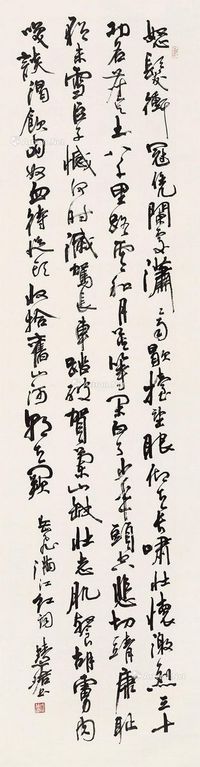 怒髮衝冠凭闌處瀟〻雨歇擡望眼仰天長嘯壯懷激烈三十
功名塵与土八千里路雲和月莫等閑白了少年頭空悲切靖康恥
猶未雪臣子憾何時滅駕長車踏破賀蘭山缺壯志飢餐胡虜肉
咲談渴飲匈奴血待從頭收拾舊山河朝天闕
岳飛滿江紅詞